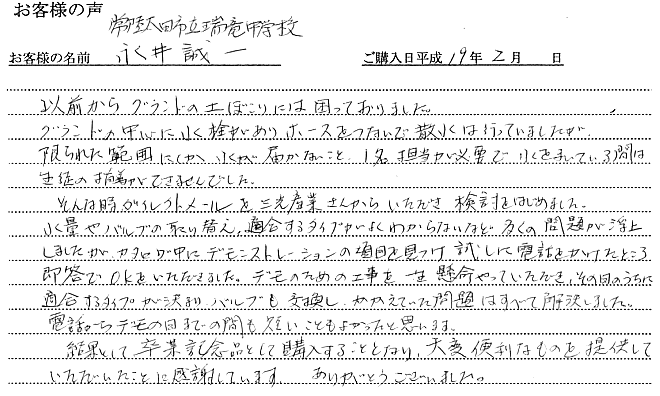 お客様の声
常陸太田市立瑞竜中学校
お客様の名前 永井誠一 ご購入日平成19年2月 日
以前からグランドの土ぼこりには困っておりました。
グランドの中心に水栓がありホースをつないで散水は行っていましたが、
限られた範囲にしか水が届かないこと、1名担当が必要で水をまいている間は
生徒の指導ができませんでした。
そんな時ダイレクトメールを三光産業さんからいただき検討をはじめました。
水量やバルブの取り替え、適合するタイプがよくわからないなど多くの問題が浮上
しましたがカタログ中にデモンストレーションの項目を見つけ試しに電話をかけたところ
即答でOKをいただきました。デモのための工事を一生懸命やっていただき、その日のうちに
適合するタイプが決まりバルブも交換し、かかえていた問題はすべて解決しました。
電話からデモの日までの間も短いこともよかったと思います。
結果として卒業記念品として購入することとなり、大変便利なものを提供して
いただいたことに感謝しています。 ありがとうございました。